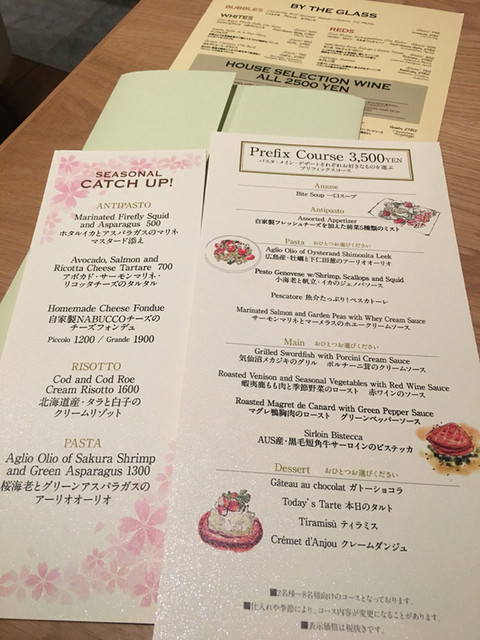 BY THE GLASS
BUBBLES
WHITES
REDS
HOUSE SELECTION WINE
ALL 2500 YEN
SEASONAL
CATCH UP!
ANTIPASTO
Marinated Firefly Squid
and Asparagus 500
ホタルイカとアスパラガスのマリネ
マスタード添え
Avocado, Salmon and
Ricotta Cheese Tartare 700
アボカド・サーモンマリネ・
リコッタチーズのタルタル
Homemade Cheese Fondue
自家製NABUCCOチーズの
チーズフォンデュ
Piccolo 1200 / Grande 1900
RISOTTO
Cod and Cod Roe
Cream Risotto 1600
北海道産・タラと白子の
クリームリゾット
PASTA
Aglio Olio of Sakura Shrimp
and Green Asparagus 1300
桜海老とグリーンアスパラガスの
アーリオオーリオ
Prefix Course 3,500YEN
パスタ・メイン・デザートそれぞれお好きなものを選ぶ
プリフィックスコース
Amuse
Bite Soup 一口スープ
Antipasto
Assorted Appetizer
自家製フレッシュチーズを加えた前菜5種類のミスト
Pasta おひとつお選びください
Aglio Olio of Oysterand Shimonita Leek
広島産・牡蠣と下仁田葱のアーリオオーリオ
Pesto Genovese w/Shrimp, Scallops and Squid
小海老と帆立・イカのジェノバソース
Pescatore 魚介たっぷり!ペスカトーレ
Marinated Salmon and Garden Peas with Whey Cream Sauce
サーモンマリネとマーメラスのホエークリームソース
Main おひとつお選びください
Grilled Swordfish with Porcini Cream Sauce
気仙沼メカジキのグリル ポルチーニ茸のクリームソース
Roasted Venison and Seasonal Vegetables with Red Wine Sauce
蝦夷鹿もも肉と季節野菜のロースト 赤ワインのソース
Roasted Magret de Canard with Green Pepper Sauce
マグレ鴨胸肉のロースト グリーンペッパーソース
Sirloin Bistecca
AUS産・黒毛短角牛サーロインのビステッカ
Dessert おひとつお選びください
Gâteau au chocolat ガトーショコラ
Today's Tarte 本日のタルト
Tiramisù ティラミス
Crémet d'Anjou クレームダンジュ
■2名様〜8名様向けのコースとなっております。
■仕入れや季節により、コース内容が変更になることがあります。
■表示価格は税抜きです。